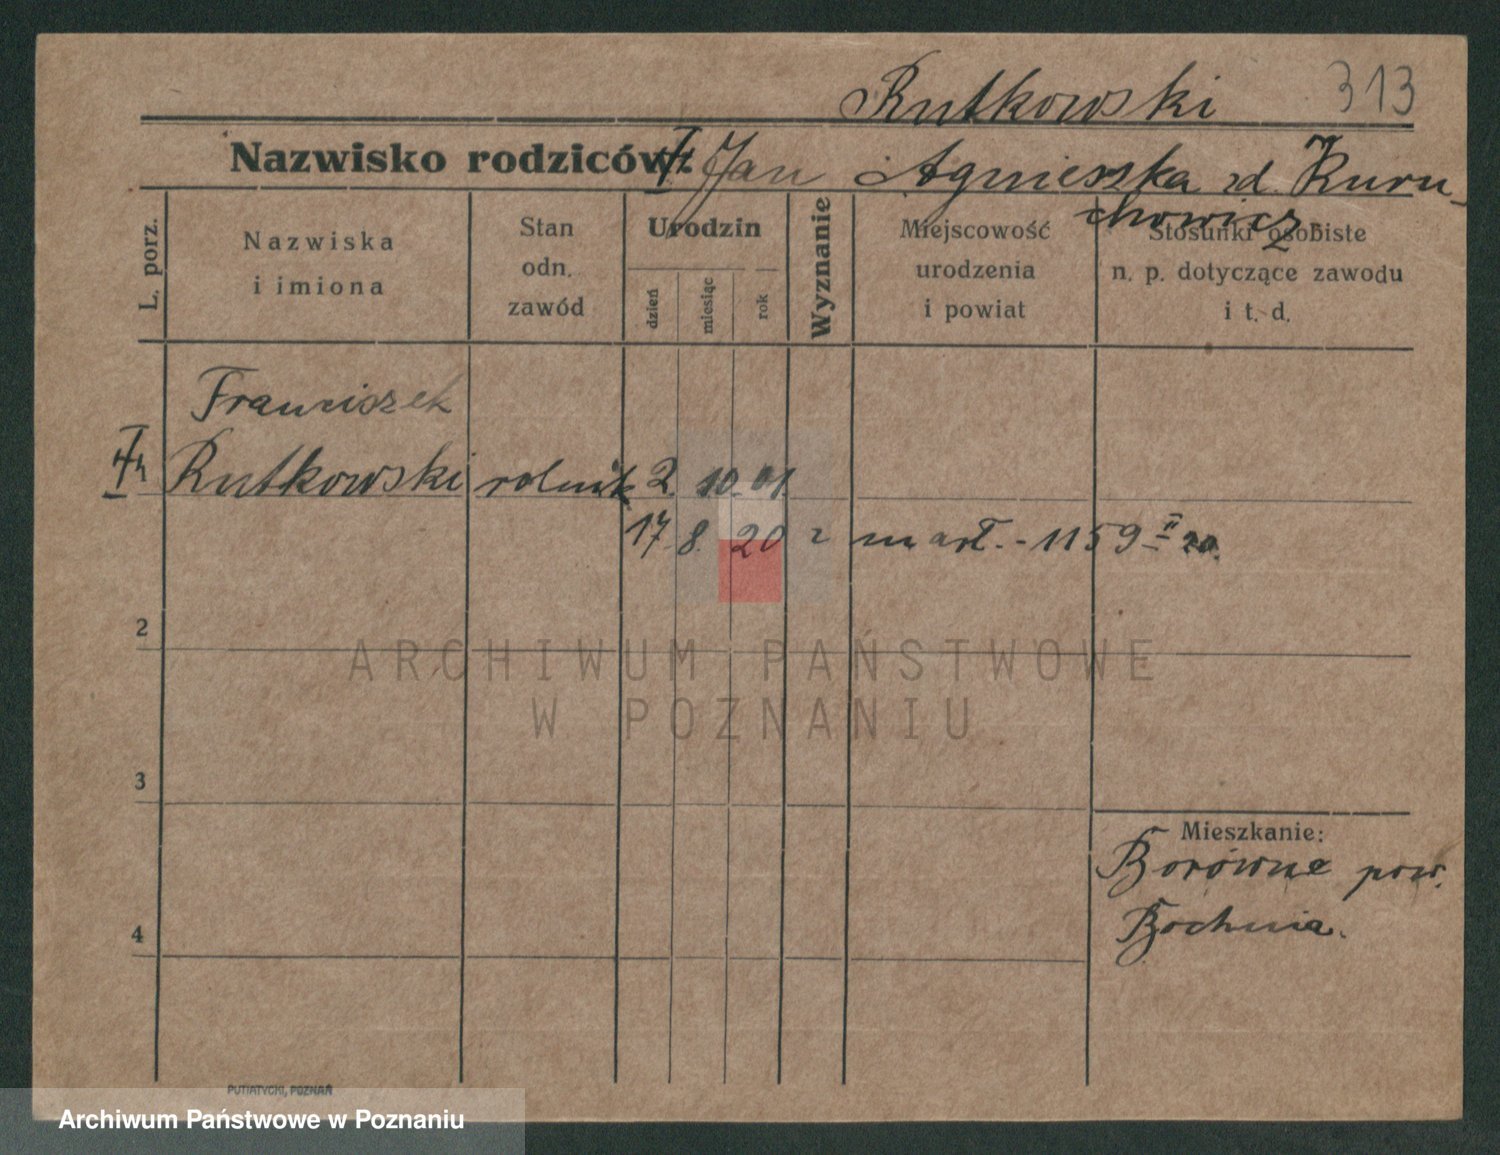 Rutkowski 313
Nazwisko rodziców: Jan Agnieszka zd. Kuru-
chowicz
L. porz.
Nazwiska
i imiona
Stan
odn.
zawód
Urodzin
dzień
miesiąc
rok
Wyznanie
Miejscowość
urodzenia
i powiat
Stosunki osobiste
n. p. dotyczące zawodu
i t. d.
Franciszek
Rutkowski rolnik 2. 10. 01.
17. 8. 20 z mart. - 1159 II 20.
2
3
4
Mieszkanie:
Borówne pow.
Bochnia.
ARCHIWUM PAŃSTWOWE
W POZNANIU
PUTIATYCKI, POZNAŃ
Archiwum Państwowe w Poznaniu